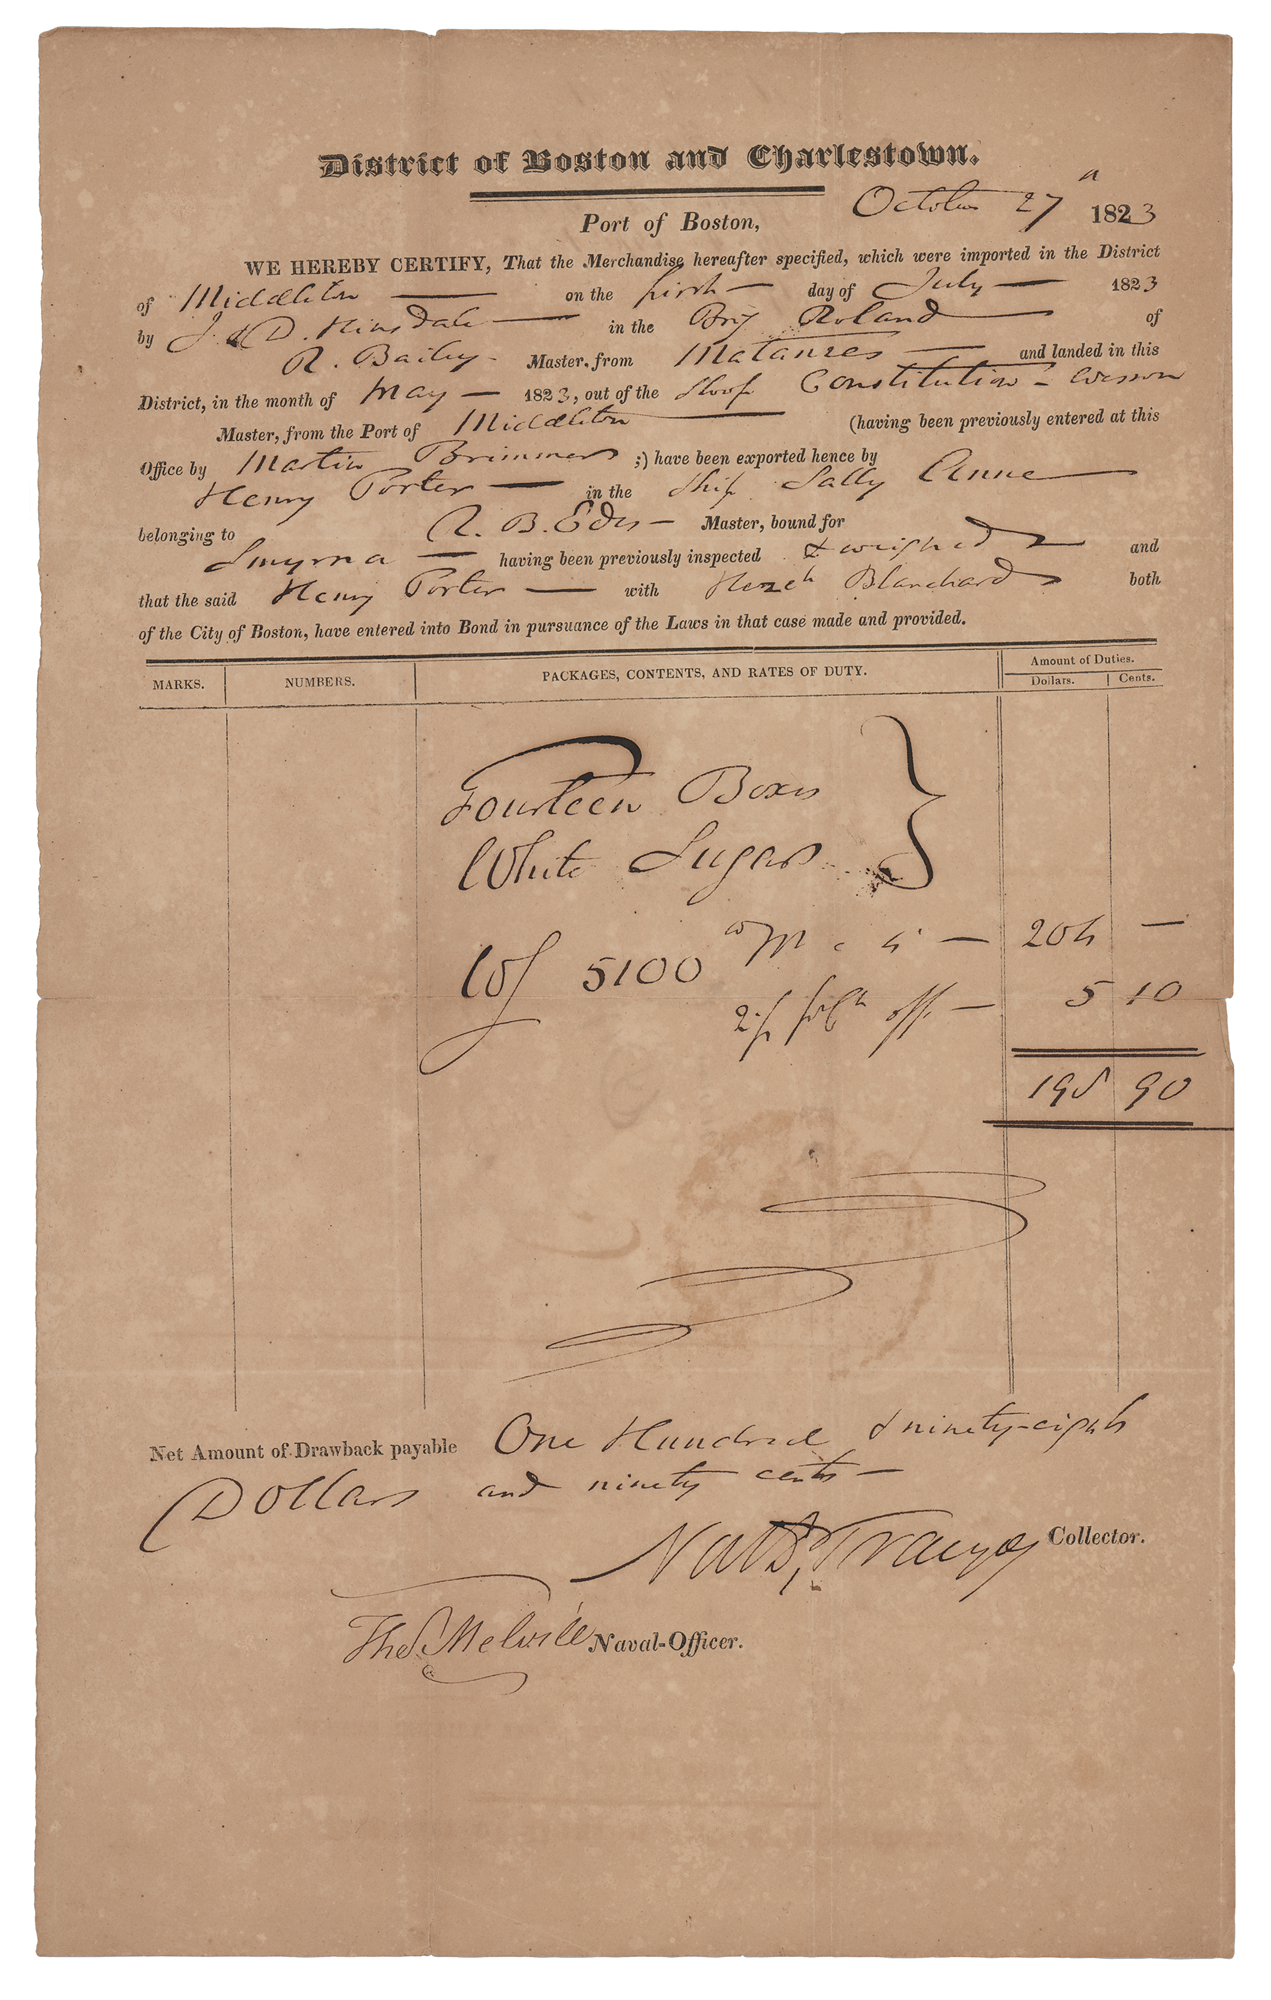 District of Boston and Charlestown.
Port of Boston, October 27 1823
WE HEREBY CERTIFY, That the Merchandise hereafter specified, which were imported in the District
of Middleton on the first day of July 1823
by J & D. Hinsdale in the Brig Roland of
R. Bailey Master, from Matanzes and landed in this
District, in the month of May 1823, out of the Sloop Constitution - Wesson
Master, from the Port of Middleton (having been previously entered at this
Office by Martin Brimmer ;) have been exported hence by
Henry Porter in the Ship Sally Anne
belonging to R. B. Edes Master, bound for
Smyrna having been previously inspected & weighed and
that the said Henry Porter with Hezeh Blanchard both
of the City of Boston, have entered into Bond in pursuance of the Laws in that case made and provided.
MARKS. NUMBERS. PACKAGES, CONTENTS, AND RATES OF DUTY. Amount of Duties.
Dollars. Cents.
Fourteen Boxes
White Sugars
5100 204 —
off — 5 10
198 90
Net Amount of Drawback payable One Hundred & ninety-eight
Dollars and ninety cents —
Collector.
Thos Melvill Naval-Officer.